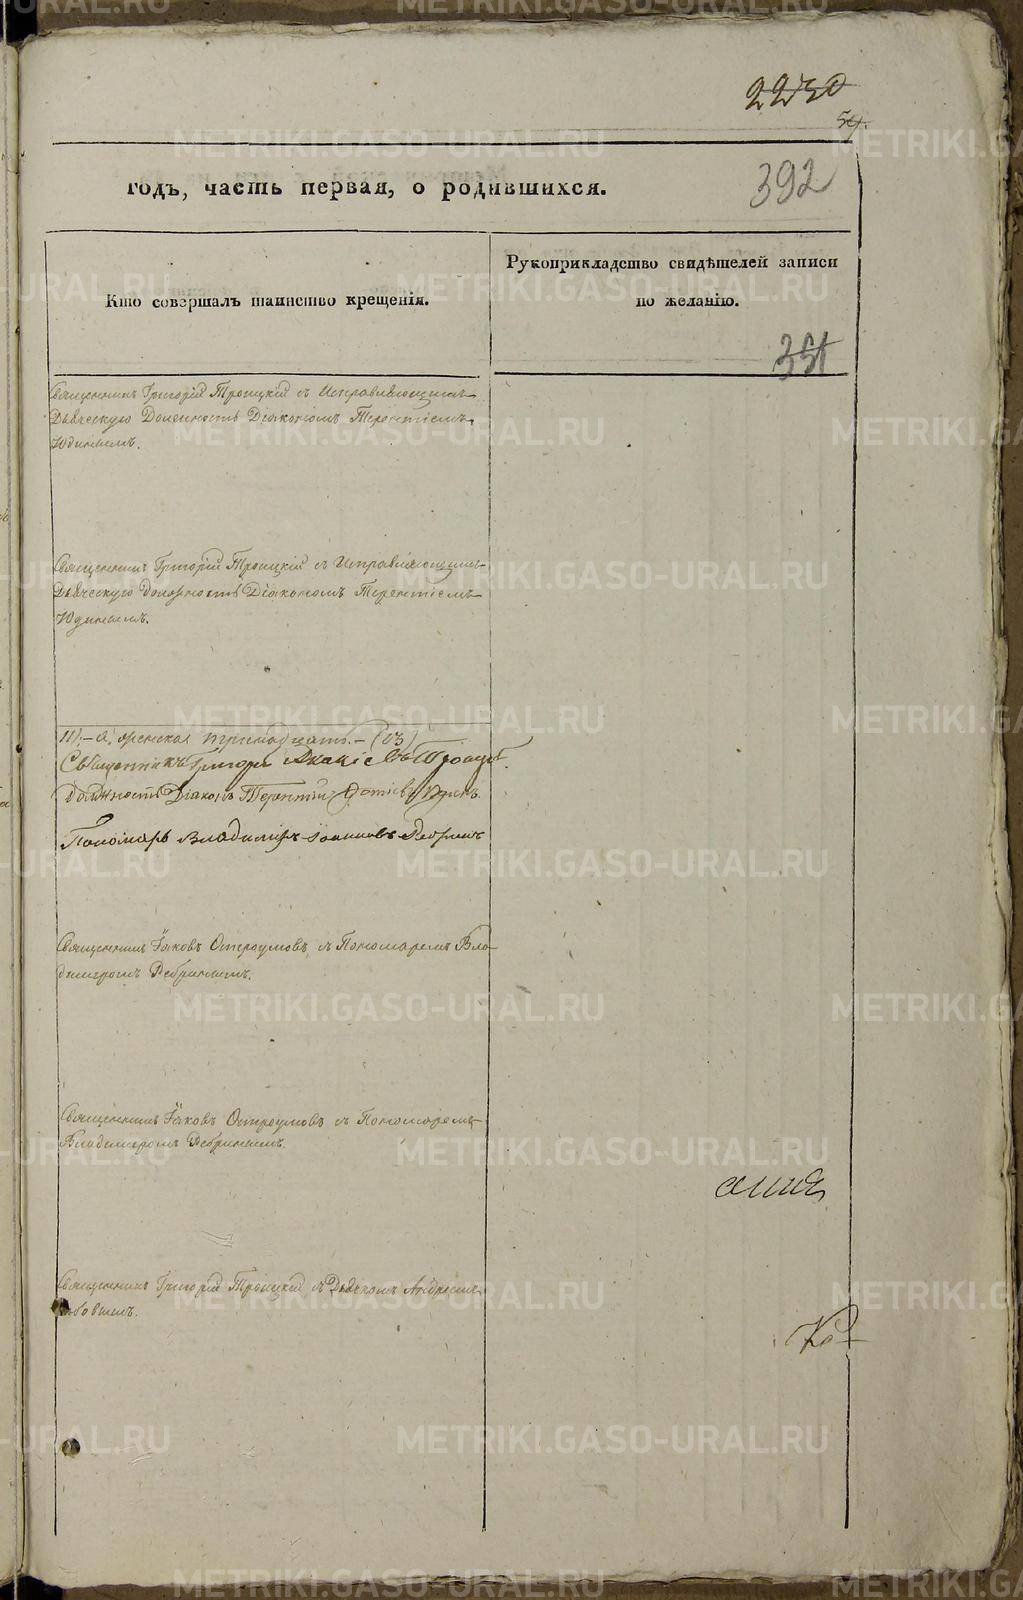 2230
54.
годъ, часть первая, о родившихся.
392
Кто совершалъ таинство крещенія.
Рукоприкладство свидѣтелей записи
по желанію.
351
Священникъ Григорій Троицкій съ Исправляющимъ
Дьяческую Должность Діакономъ Терентіемъ
Юдинымъ.
Священникъ Григорій Троицкій съ Исправляющимъ
Дьяческую должность Діакономъ Терентіемъ
Юдинымъ.
Священникъ Григорій
должность Діаконъ Терентій
Пономарь Владиміръ Іоанновъ Ребринъ
Священникъ Іаковъ Остроумовъ съ Пономаремъ Вла-
димиромъ Ребринымъ.
Священникъ Іаковъ Остроумовъ съ Пономаремъ
Владимиромъ Ребринымъ.
Священникъ Григорій Троицкій съ Дьячкомъ Андреемъ
METRIKI.GASO-URAL.RU